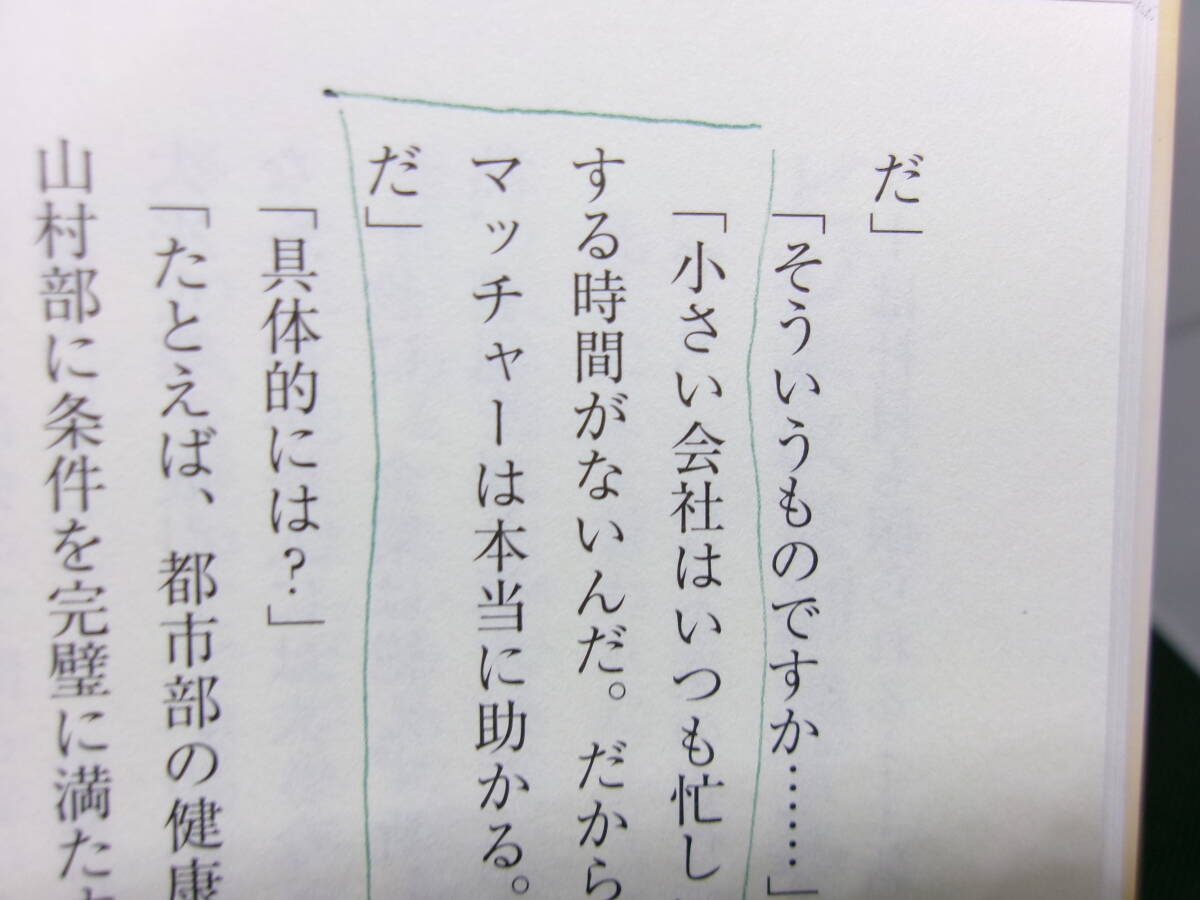 だ」
「そういうものですか……」
「小さい会社はいつも忙し
する時間がないんだ。だから
マッチャーは本当に助かる。
だ」
「具体的には?」
「たとえば、都市部の健康
山村部に条件を完璧に満た